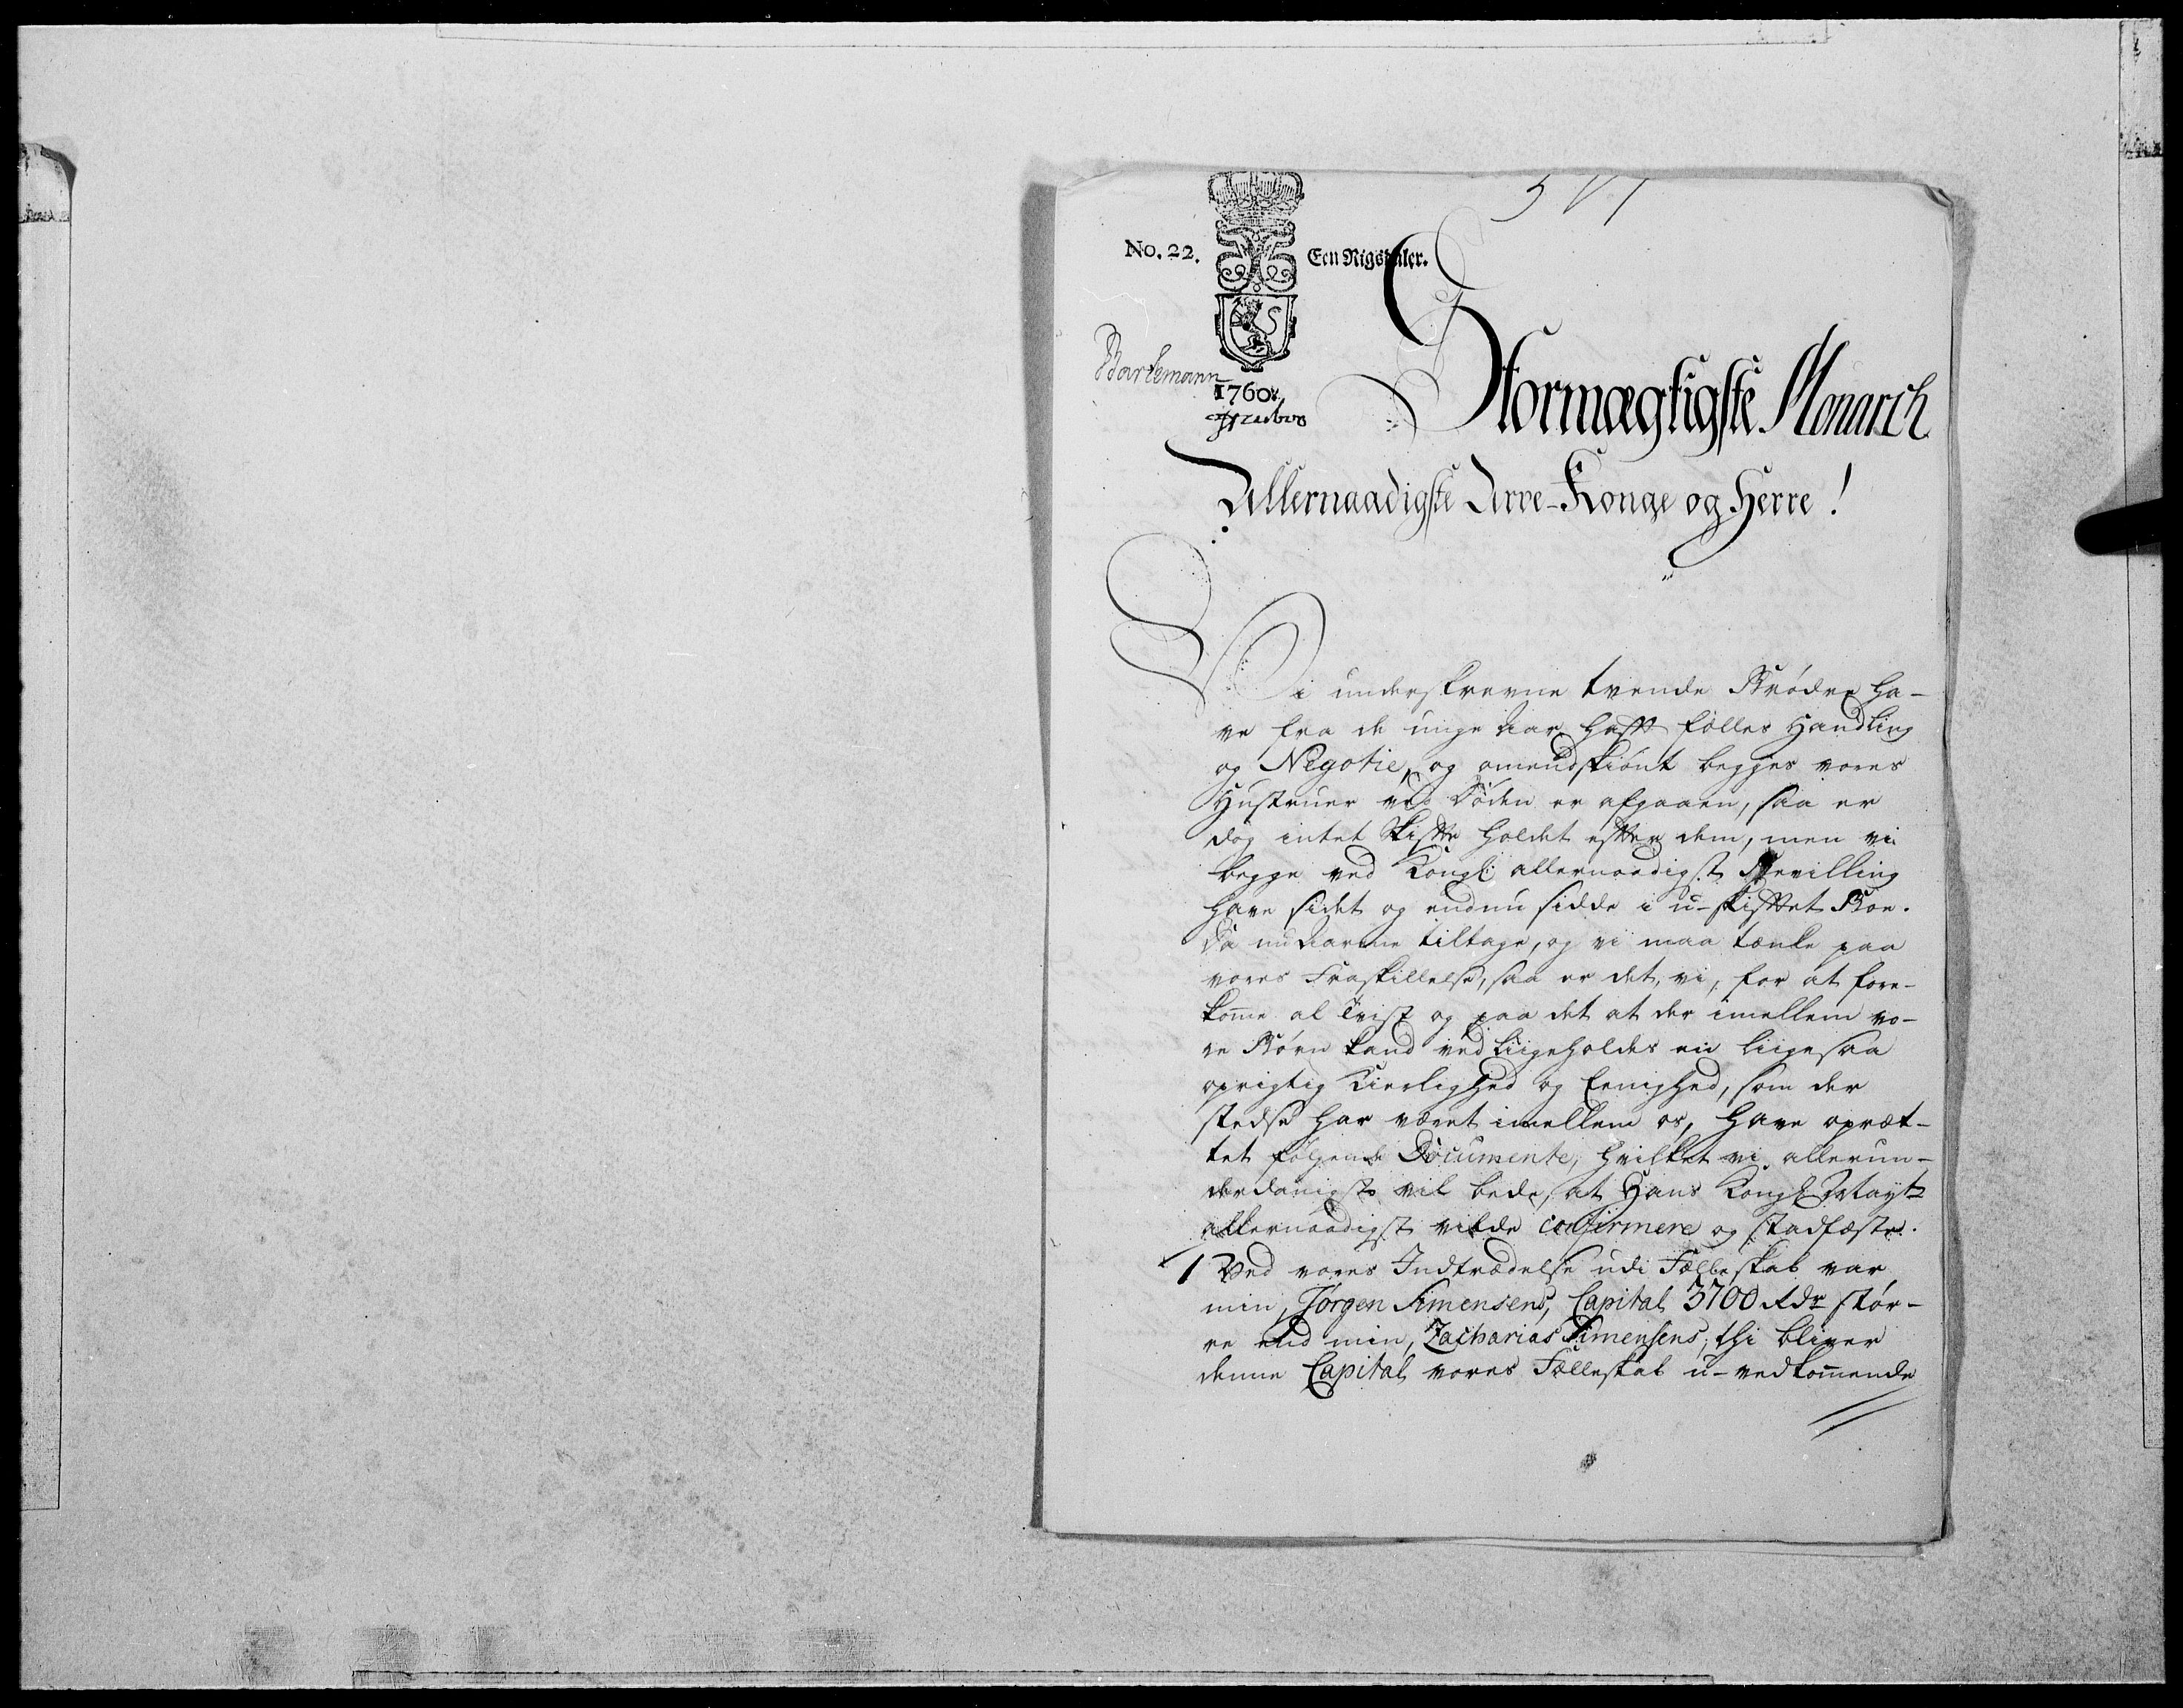 No. 22.
Een Rigsdaler.
Bartemann
1760.
Stormægtigste Monarch
Allernaadigste Arve-Konge og Herre!
Vi underskrevne tvende Brødre ha-
ve fra de unge Aar hafft fælles Handling
og Negotie, og omendskiønt begges vores
Hustruer ved Døden er afgaaen, saa er
dog intet Skiffte holdet effter dem, men vi
begge ved Kongl: allernaadigst Bevilling
have sidet og endnu sidde i u-skifftet Boe.
Da nu Aarene tiltage, og vi maa tænke paa
vores Fraskillelse, saa er det, vi, for at fore-
kom̄e al Tvist og paa det at der imellem vo-
re Børn kand ved liigeholdes en liigesaa
oprigtig Kierlighed og Eenighed, som der
stedse har været imellem os, have opræt-
tet følgende Documente, hvilket vi allerun-
derdanigst vil bede, at Hans Kongl Mayts
allernaadigst vilde confirmere og stadfæste.
1 Ved vores Indtrædelse udi Fælleskab var
min, Jørgen Simensens, Capital 3700 Rdr stør-
re end min, Zacharias Simensens, thi bliver
denne Capital vores Fælleskab u-vedkom̄ende